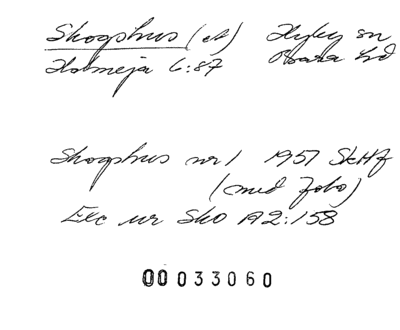 Skogshus (et) Hyby sn
Holmeja 6:87 Bara hd
Skogshus nr 1 1957 SkHf
(med foto)
Exc ur Sko A2:158
00 033060